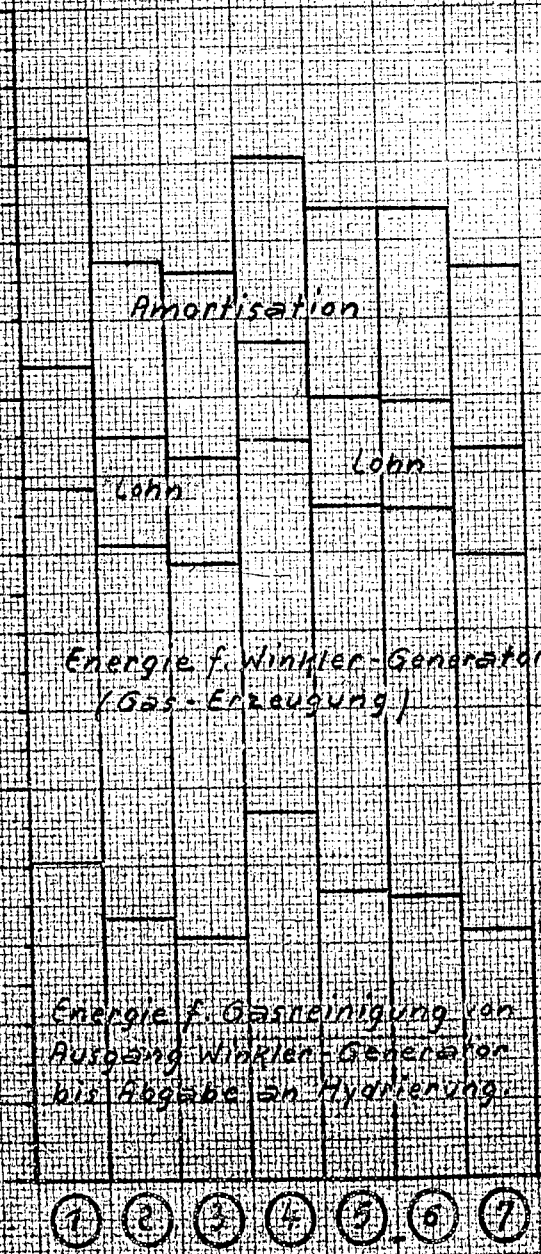 Amortisation
Lohn
Lohn
Energie f. Winkler-Generator
(Gas-Erzeugung)
Energie f. Gasreinigung von
Ausgang Winkler-Generator
bis Abgabe an Hydrierung.
1 2 3 4 5 6 7